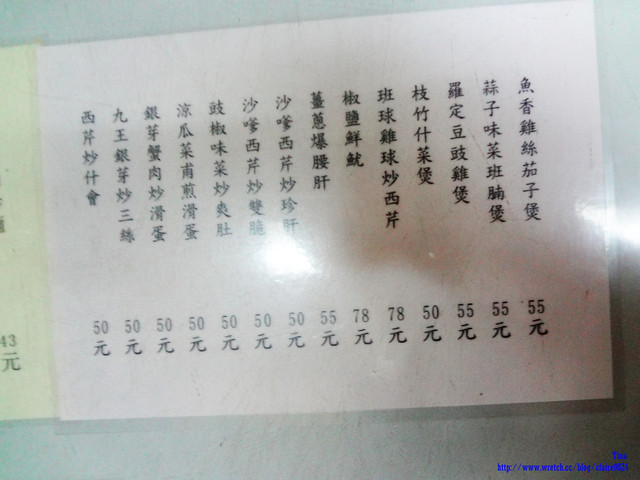 魚香雞絲茄子煲 55元
蒜子味菜班腩煲 55元
羅定豆豉雞煲 55元
枝竹什菜煲 50元
班球雞球炒西芹 78元
椒鹽鮮魷 78元
薑蔥爆腰肝 55元
沙嗲西芹炒珍肝 50元
沙嗲西芹炒雙脆 50元
豉椒味菜炒爽肚 50元
涼瓜菜甫煎滑蛋 50元
銀芽蟹肉炒滑蛋 50元
九王銀芽炒三絲 50元
西芹炒什會 50元
43元